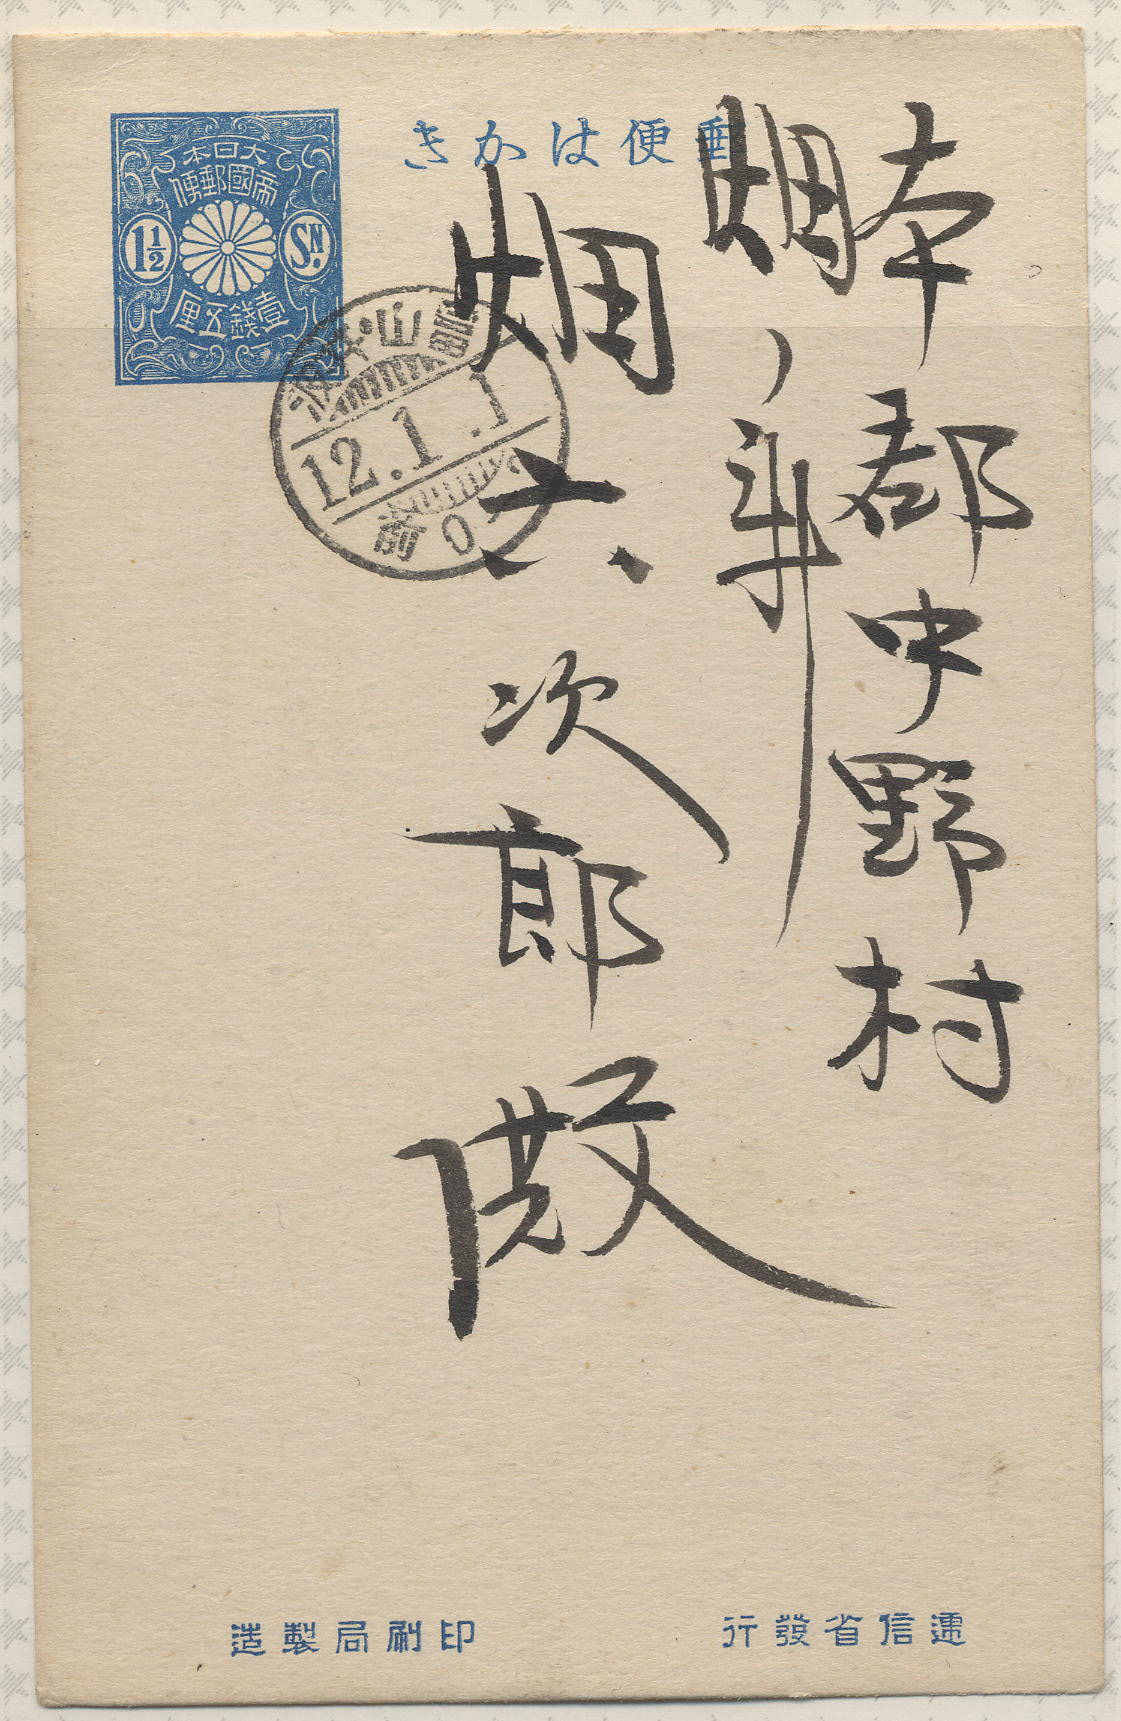 郵便はかき
大日本
帝國郵便
1½
SN.
壹錢五厘
12.1.1
前0
本郡中野村
畑ノ
畑六次郎殿
遞信省發行
印刷局製造